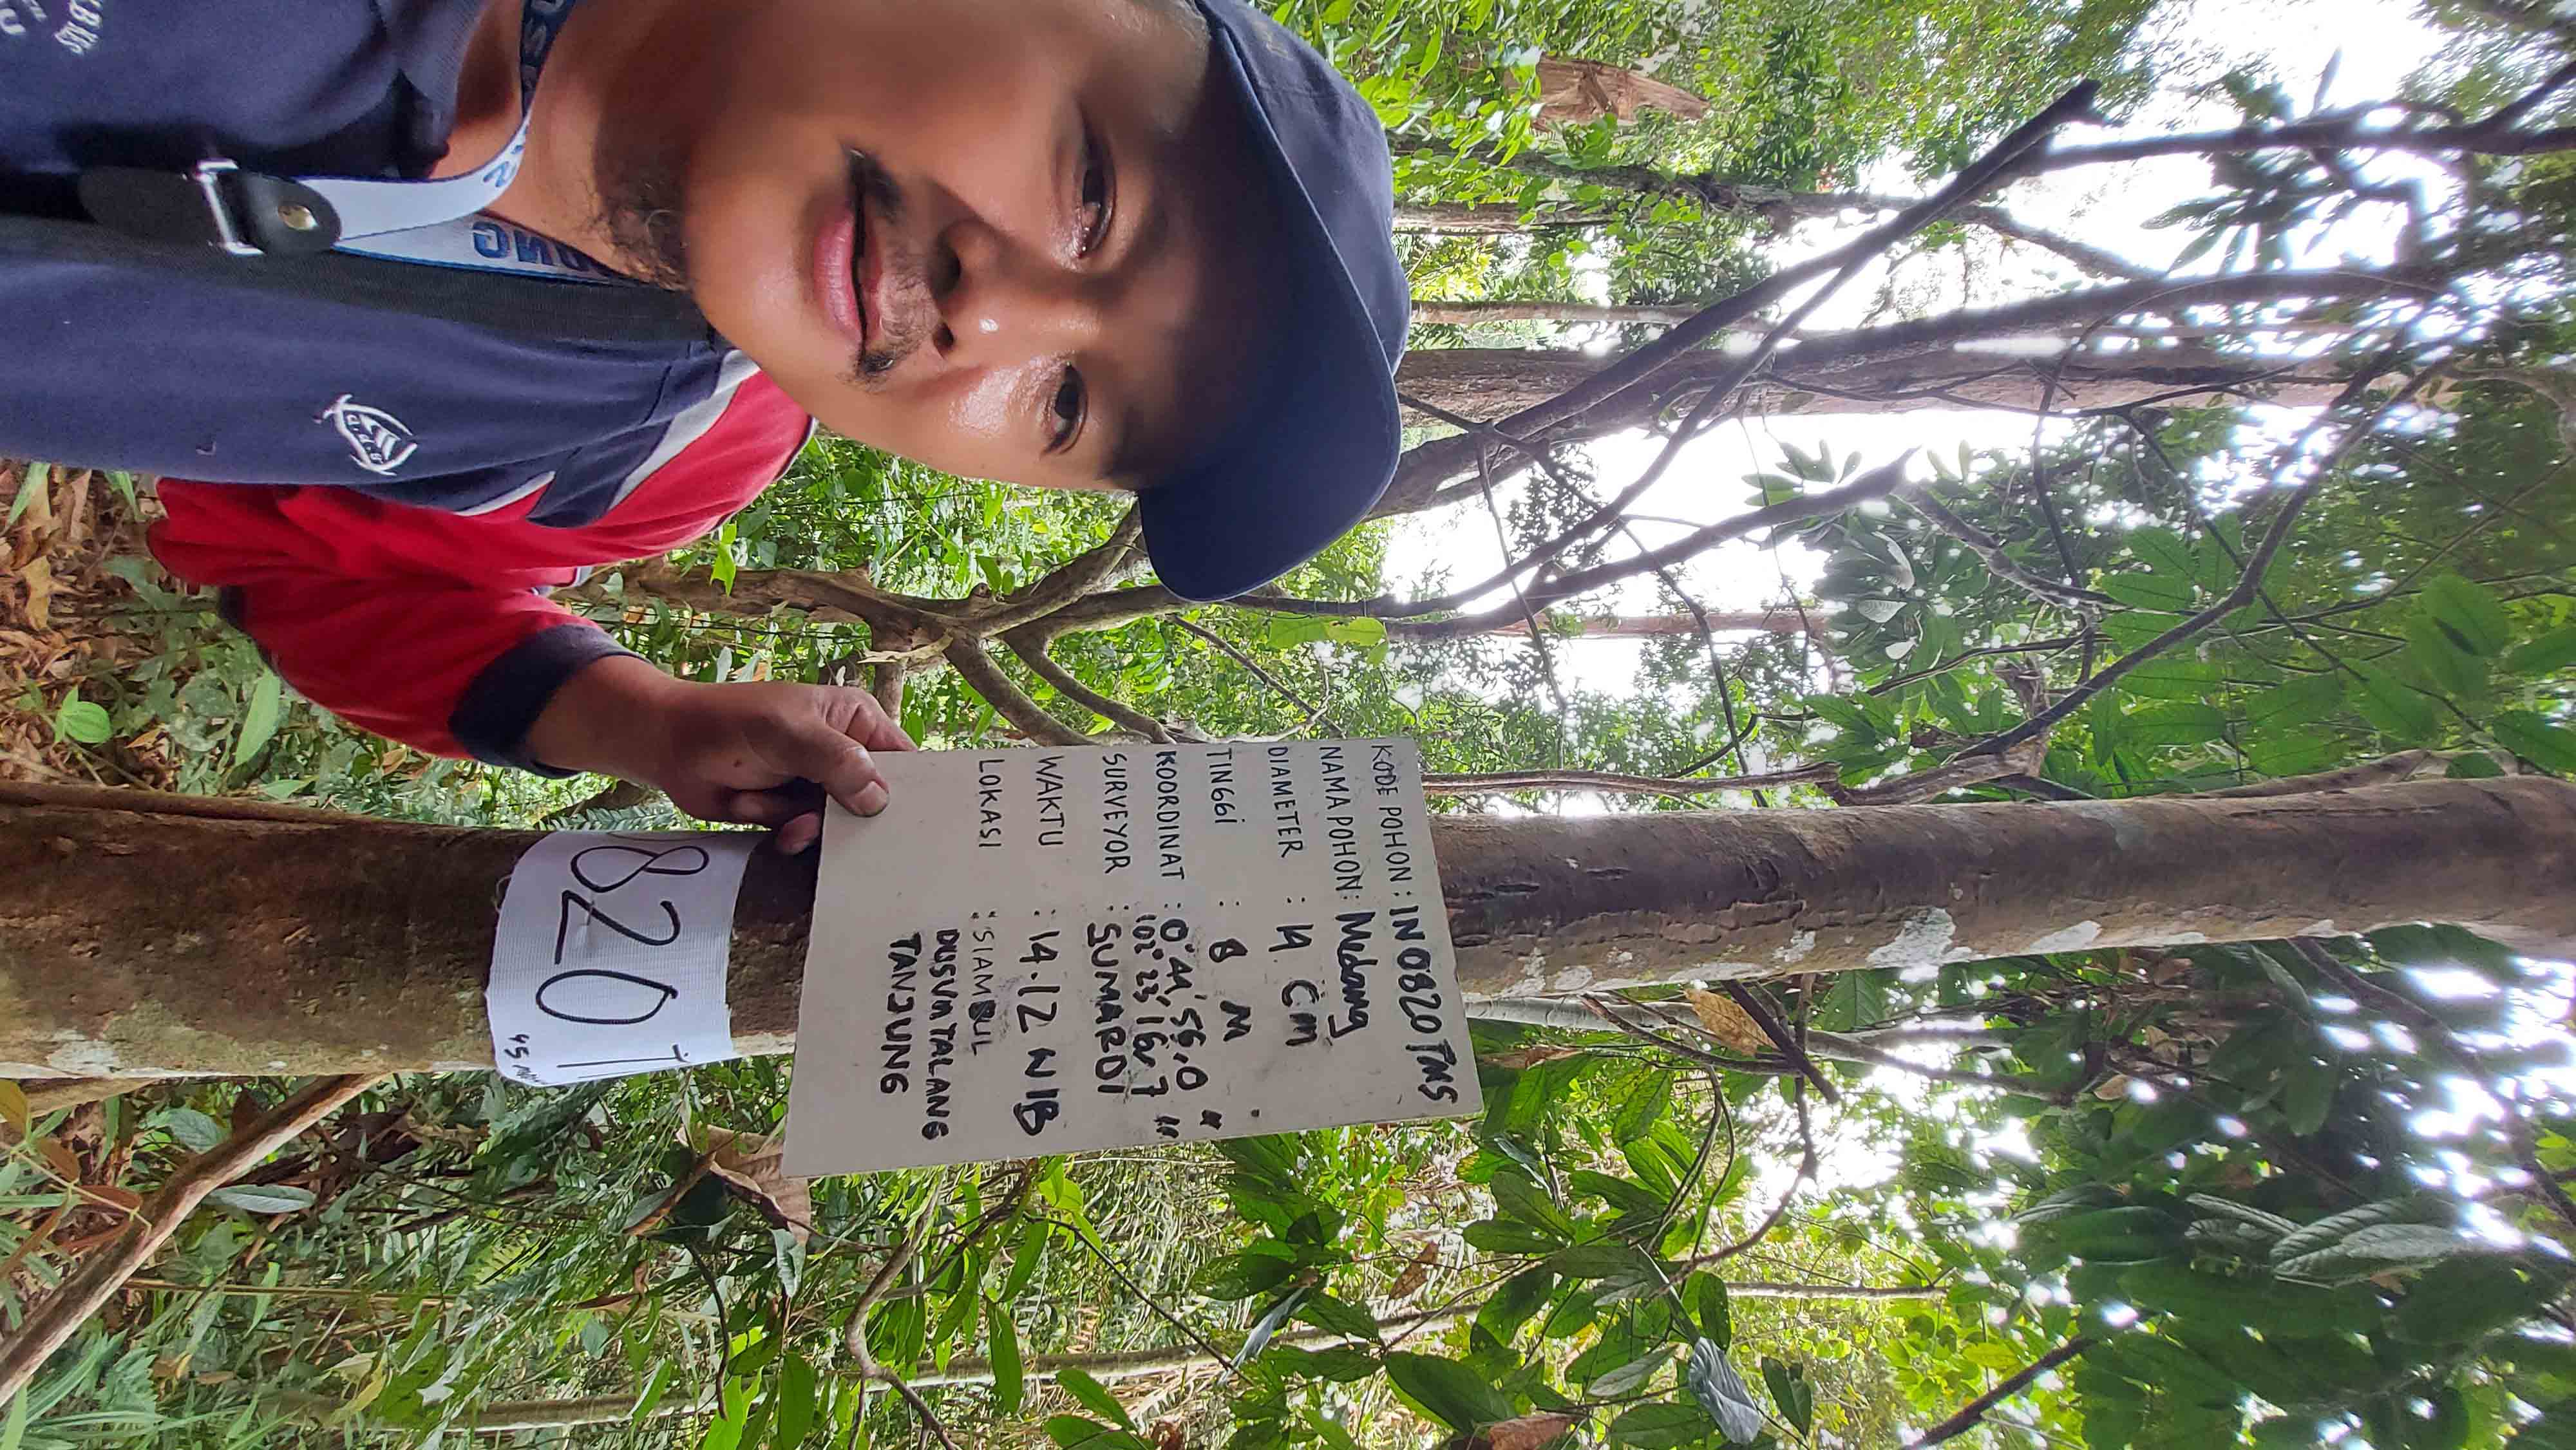 KODE POHON : IN0820 TMS
NAMA POHON : Medang
DIAMETER : 14 CM
TINGGI : 8 M
KOORDINAT : 0° 44' 56,0 "
102° 23' 16,7 "
SURVEYOR : SUMARDI
WAKTU : 14.12 WIB
LOKASI : SIAMBUL
DUSUN TALANG
TANJUNG
0820 T
45
a.d.s